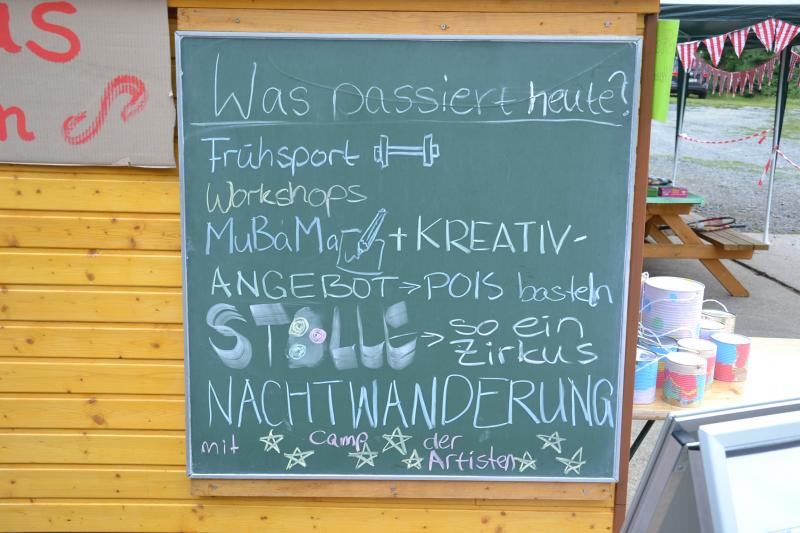 as
n
Was passiert heute?
Frühsport
Workshops
MuBaMa + KREATIV-
ANGEBOT → POIS basteln
STELLE → so ein
Zirkus
NACHTWANDERUNG
mit Camp der
Artisten